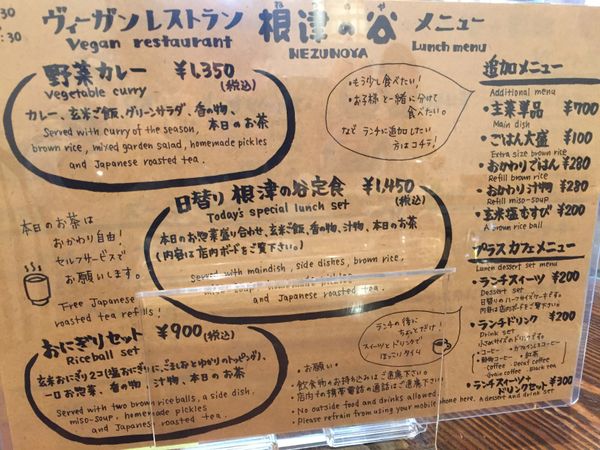 :30
:30
ヴィーガンレストラン 根津の谷 メニュー
Vegan restaurant NEZUNOYA Lunch menu
野菜カレー ¥1,350
Vegetable curry (税込)
カレー、玄米ご飯、グリーンサラダ、香の物、本日のお茶
Served with curry of the season,
brown rice, mixed garden salad, homemade pickles
and Japanese roasted tea.
・もう少し食べたい!
・お子様と一緒に分けて
食べたい。
など ランチに追加したい
方はコチラ!
日替り 根津の谷定食 ¥1,450
Today's special lunch set (税込)
本日のお惣菜盛り合わせ、玄米ご飯、香の物、汁物、本日のお茶
(内容は店内ボードをご覧下さい。)
Served with maindish, side dishes, brown rice,
and Japanese roasted tea.
本日のお茶は
おかわり自由!
セルフサービスで
お願いします。
Free Japanese
roasted tea refills.
おにぎりセット ¥900(税込)
Riceball set
玄米おおにぎり2コ(塩おにぎりに、ごましおとゆかりのトッピング)、
一口お惣菜、香の物、汁物、本日のお茶
Served with two brown riceballs, a side dish,
miso-soup, homemade pickles
and Japanese roasted tea.
ランチの後に
ちょっとだけ!
スイーツとドリンクで
ほっこりタイム
・お願い・
・飲食物のお持ち込みはご遠慮下さい。
・店内での携帯電話の通話はご遠慮下さい。
・No outside food and drinks allowed.
・Please refrain from using your mobile phone here.
追加メニュー
Additional menu
・主菜単品 ¥700
Main dish
・ごはん大盛 ¥100
Extra size brown rice
・おかわりごはん ¥280
Refill brown rice
・おかわり汁物 ¥280
Refill miso-soup
・玄米塩むすび ¥200
A brown rice ball
プラスカフェメニュー
Lunch dessert set menu
・ランチスイーツ ¥200
Dessert set
日替りのハーフサイズケーキです。
内容は店内ボードをご覧下さい。
・ランチドリンク ¥200
Drink set
小さめサイズのドリンクです。
・コーヒー ・カフェインレスコーヒー
・穀物コーヒー ・紅茶
・Coffee ・Decaf coffee
・Grain coffee ・Black tea
・ランチスイーツ+
ドリンクセット ¥300
A dessert and drink set